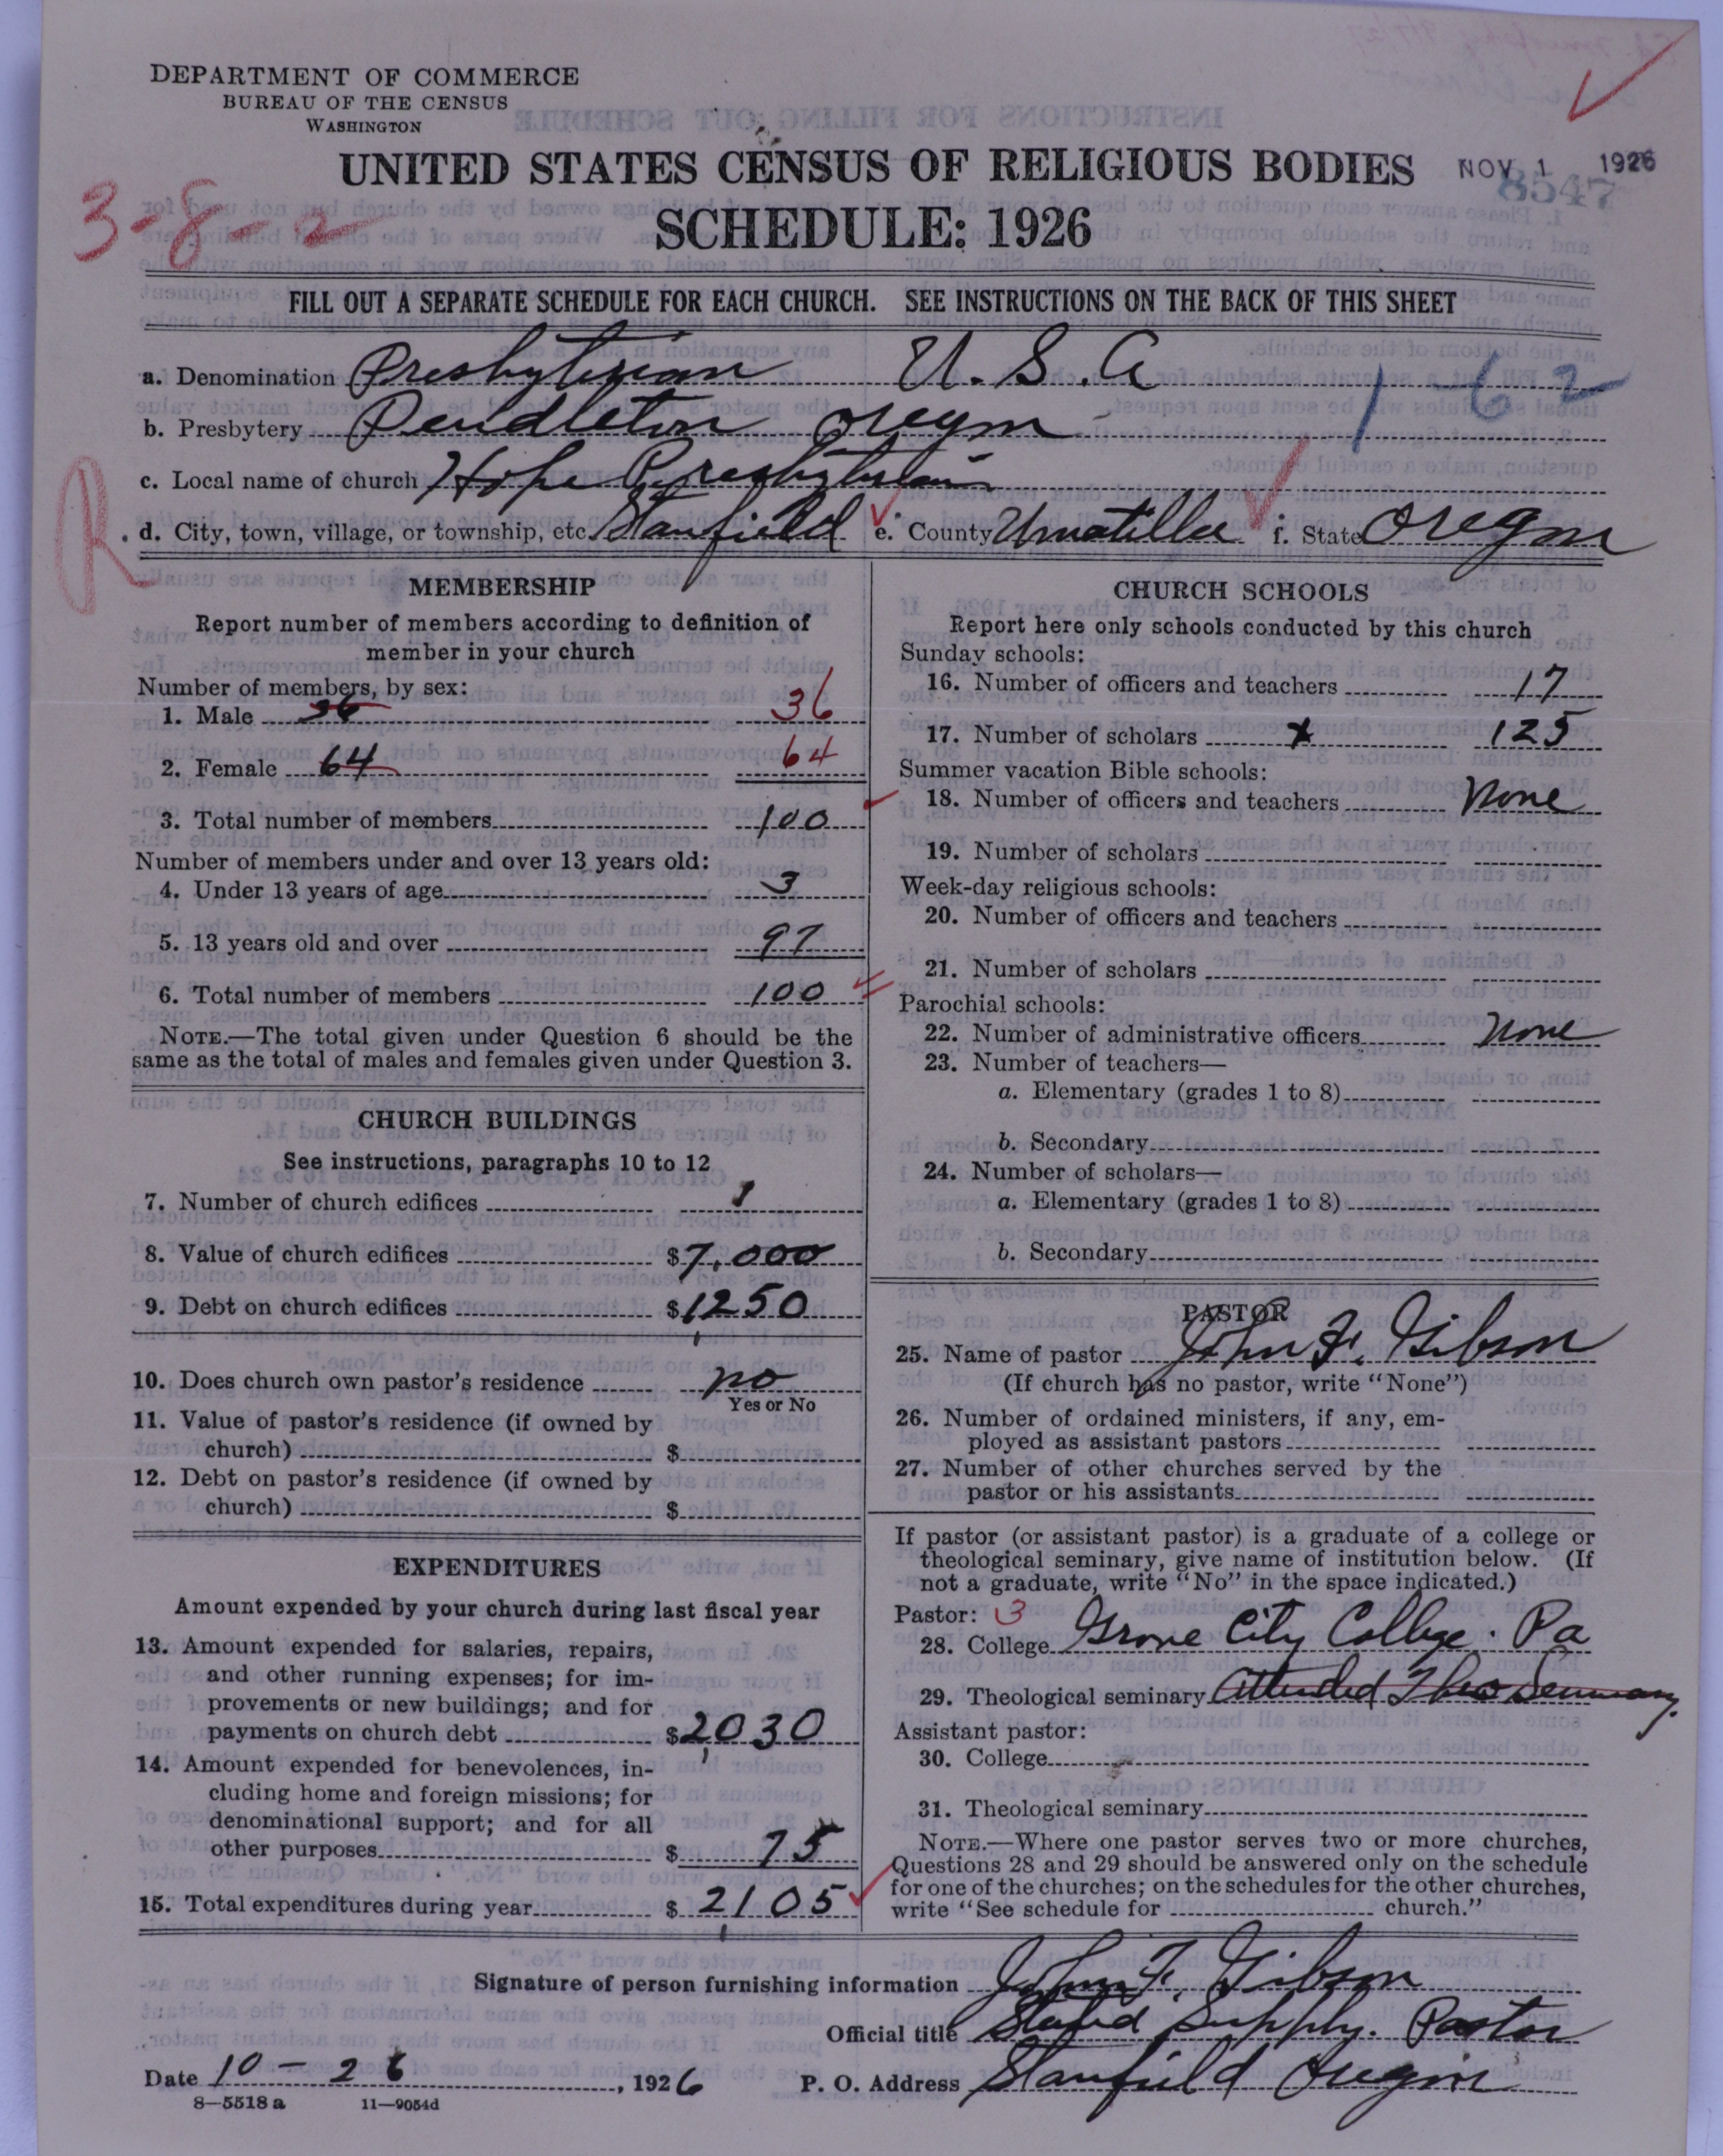 DEPARTMENT OF COMMERCE
BUREAU OF THE CENSUS
WASHINGTON
UNITED STATES CENSUS OF RELIGIOUS BODIES
NOV 1 1926
8547
3-8-2
SCHEDULE: 1926
FILL OUT A SEPARATE SCHEDULE FOR EACH CHURCH. SEE INSTRUCTIONS ON THE BACK OF THIS SHEET
a. Denomination Presbyterian U. S. A
1-62
b. Presbytery Pendleton Oregon
c. Local name of church Hope Presbyterian
R
d. City, town, village, or township, etc. Stanfield e. County Umatilla f. State Oregon
MEMBERSHIP
Report number of members according to definition of
member in your church
Number of members, by sex:
1. Male 36 36
2. Female 64 64
3. Total number of members 100
Number of members under and over 13 years old:
4. Under 13 years of age 3
5. 13 years old and over 97
6. Total number of members 100
NOTE.—The total given under Question 6 should be the
same as the total of males and females given under Question 3.
CHURCH BUILDINGS
See instructions, paragraphs 10 to 12
7. Number of church edifices 1
8. Value of church edifices $7,000
9. Debt on church edifices $1,250
10. Does church own pastor's residence no
Yes or No
11. Value of pastor's residence (if owned by
church) $
12. Debt on pastor's residence (if owned by
church) $
EXPENDITURES
Amount expended by your church during last fiscal year
13. Amount expended for salaries, repairs,
and other running expenses; for im-
provements or new buildings; and for
payments on church debt $2,030
14. Amount expended for benevolences, in-
cluding home and foreign missions; for
denominational support; and for all
other purposes $ 75
15. Total expenditures during year $ 2,105
CHURCH SCHOOLS
Report here only schools conducted by this church
Sunday schools:
16. Number of officers and teachers 17
17. Number of scholars x 125
Summer vacation Bible schools:
18. Number of officers and teachers None
19. Number of scholars
Week-day religious schools:
20. Number of officers and teachers
21. Number of scholars
Parochial schools:
22. Number of administrative officers None
23. Number of teachers—
a. Elementary (grades 1 to 8)
b. Secondary
24. Number of scholars—
a. Elementary (grades 1 to 8)
b. Secondary
PASTOR
25. Name of pastor John F. Gibson
(If church has no pastor, write "None")
26. Number of ordained ministers, if any, em-
ployed as assistant pastors
27. Number of other churches served by the
pastor or his assistants
If pastor (or assistant pastor) is a graduate of a college or
theological seminary, give name of institution below. (If
not a graduate, write "No" in the space indicated.)
Pastor: 3
28. College Grove City College. Pa
29. Theological seminary Attended Theo Seminary.
Assistant pastor:
30. College
31. Theological seminary
NOTE.—Where one pastor serves two or more churches,
Questions 28 and 29 should be answered only on the schedule
for one of the churches; on the schedules for the other churches,
write "See schedule for church."
Signature of person furnishing information John F. Gibson
Official title Stated Supply. Pastor
Date 10 - 26, 1926 P. O. Address Stanfield Oregon
8—5518 a 11—9054d